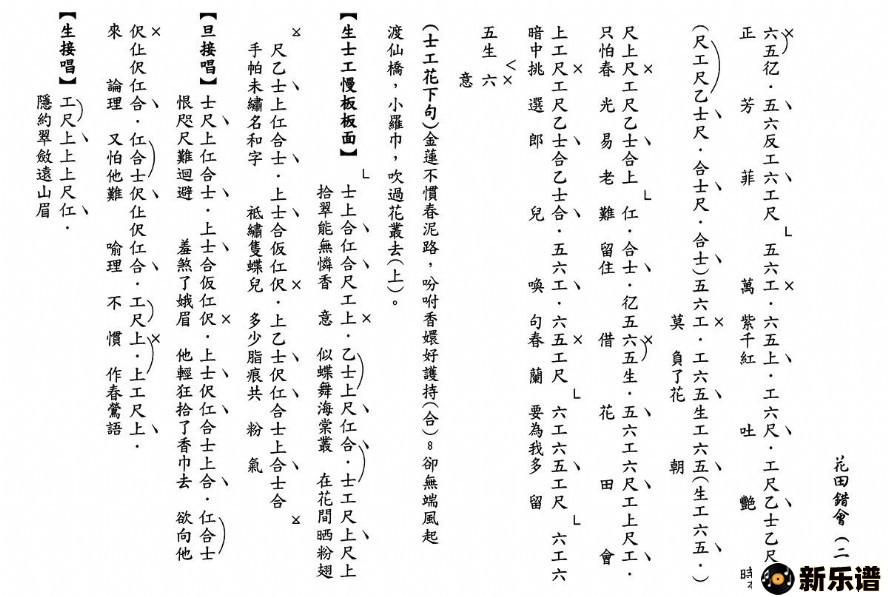 花田錯會(二
六五亿．五六反工六工尺 五六工．六五上．工六尺．工尺乙士乙尺
正 芳 菲 萬 紫千紅 吐 艷 時
(尺工尺乙士尺．合士尺．合士)五六工．工六五生工六五(生工六五．)
莫 負了花 朝
尺上尺工尺乙士合上 仜．合士．亿五六五生．五六工六尺工上尺工．
只怕春 光 易 老 難 留住 借 花 田 會
上工尺工尺乙士合乙士合．五六工．六五工尺 六工六五工尺 六工六
暗中挑 選 郎 兒 喚 句春 蘭 要為我多 留
五生 六
意
(士工花下句)金蓮不慣春泥路，吩咐香嬛好護持(合)。卻無端風起
渡仙橋，小羅巾，吹過花叢去(上)。
【生士工慢板板面】 士上合仜合尺工上．乙士上尺仜合．士工尺上尺上
拾翠能無憐香 意 似蝶舞海棠叢 在花間晒粉翅
尺乙士上仜合士．上士合仮仜伬．上乙士伬仜合士上合士合
手帕未繡名和字 祗繡隻蝶兒 多少脂痕共 粉 氣
【旦接唱】士尺上仜合士．上士合仮仜伬．上士伬仜合士上合．仜合士
恨咫尺難迴避 羞煞了娥眉 他輕狂拾了香巾去 欲向他
伬仩伬仜合．仜合士伬仩伬仜合．工尺上．上工尺上．
來 論理 又怕他難 喻理 不 慣 作春鶯語
【生接唱】工尺上上上尺仜．
隱約翠斂遠山眉
新乐谱